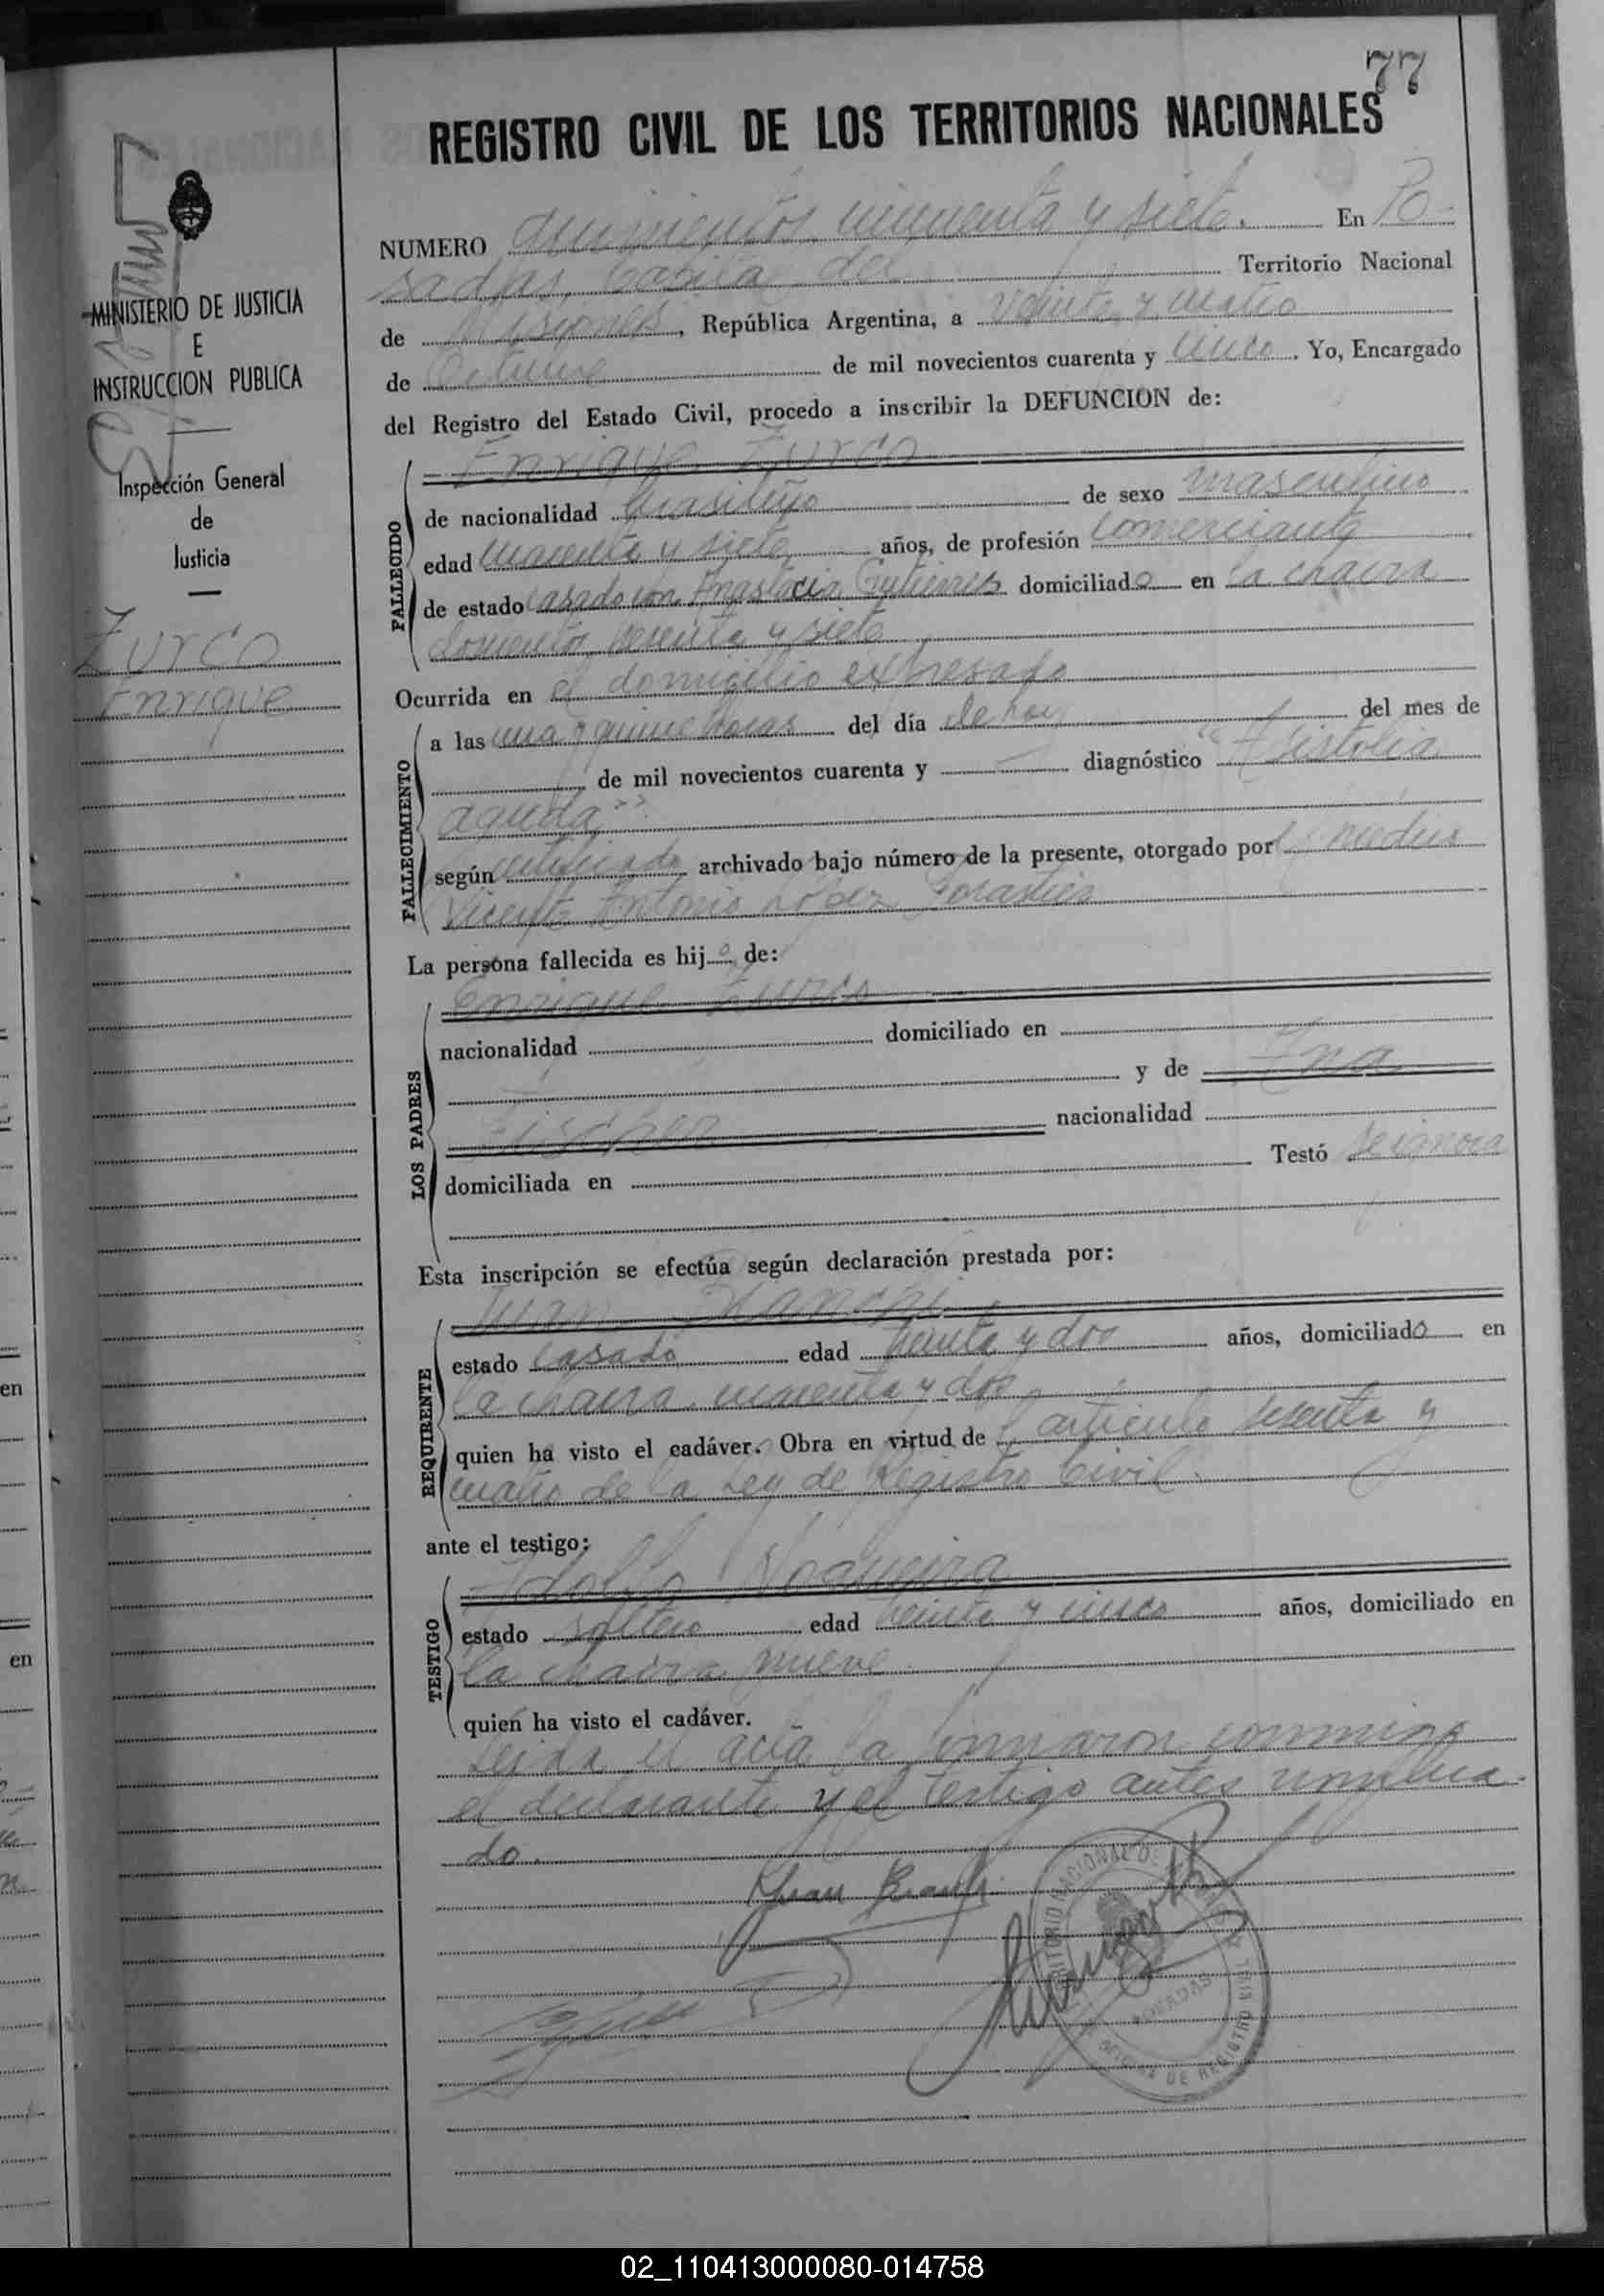 77
REGISTRO CIVIL DE LOS TERRITORIOS NACIONALES
NUMERO quinientos cincuenta y siete. En Po-
sadas, Capital del Territorio Nacional
de Misiones, República Argentina, a veinte y cuatro
de Octubre de mil novecientos cuarenta y cinco. Yo, Encargado
del Registro del Estado Civil, procedo a inscribir la DEFUNCION de:
FALLECIDO
Enrique Zurco
de nacionalidad brasileño de sexo masculino
edad cuarenta y siete años, de profesión comerciante
de estado casado con Anastacia Gutierres domiciliado en la chacra
doscientos sesenta y siete
Ocurrida en el domicilio expresado
FALLECIMIENTO
a las una y quince horas del día de hoy del mes de
de mil novecientos cuarenta y diagnóstico "Asistolia
aguda".
según certificado archivado bajo número de la presente, otorgado por médico
Vicente Antonio López Forastier
La persona fallecida es hijo de:
LOS PADRES
Enrique Zurco
nacionalidad domiciliado en
y de Ana
Fischer
nacionalidad
domiciliada en Testó se ignora
Esta inscripción se efectúa según declaración prestada por:
REQUIRENTE
Juan
estado casado edad treinta y dos años, domiciliado en
la chacra cincuenta y dos
quien ha visto el cadáver. Obra en virtud de articulo sesenta y
cuatro de la Ley de Registro Civil.
ante el testigo:
TESTIGO
Adolfo Nogueira
estado soltero edad veinte y cinco años, domiciliado en
la chacra nueve
quien ha visto el cadáver.
Leida el acta la firmaron conmigo
el declarante y el testigo antes nombra-
do.
Juan
POSADAS
MINISTERIO DE JUSTICIA
E
INSTRUCCION PUBLICA
Inspección General
de
Justicia
Zurco
Enrique
en
en
02_110413000080-014758